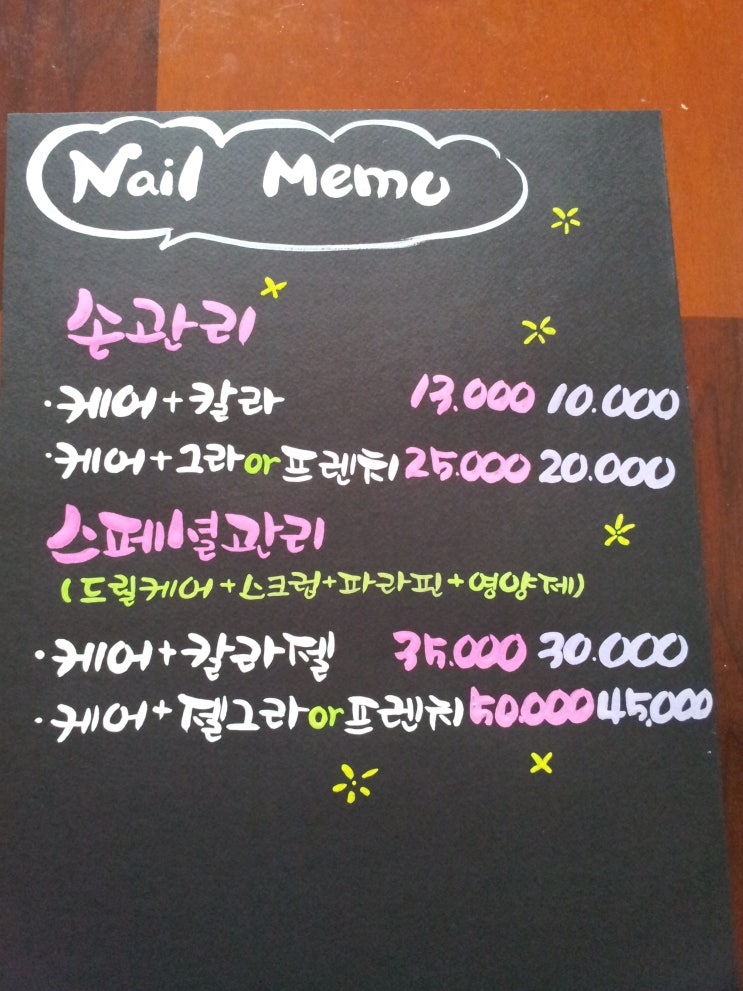 Nail Memo
손관리
·케어+칼라 13.000 10.000
·케어+그라or프렌치 25.000 20.000
스페셜관리
(드릴케어+스크럽+파라핀+영양제)
·케어+칼라젤 35.000 30.000
·케어+젤그라or프렌치 50.000 45.000